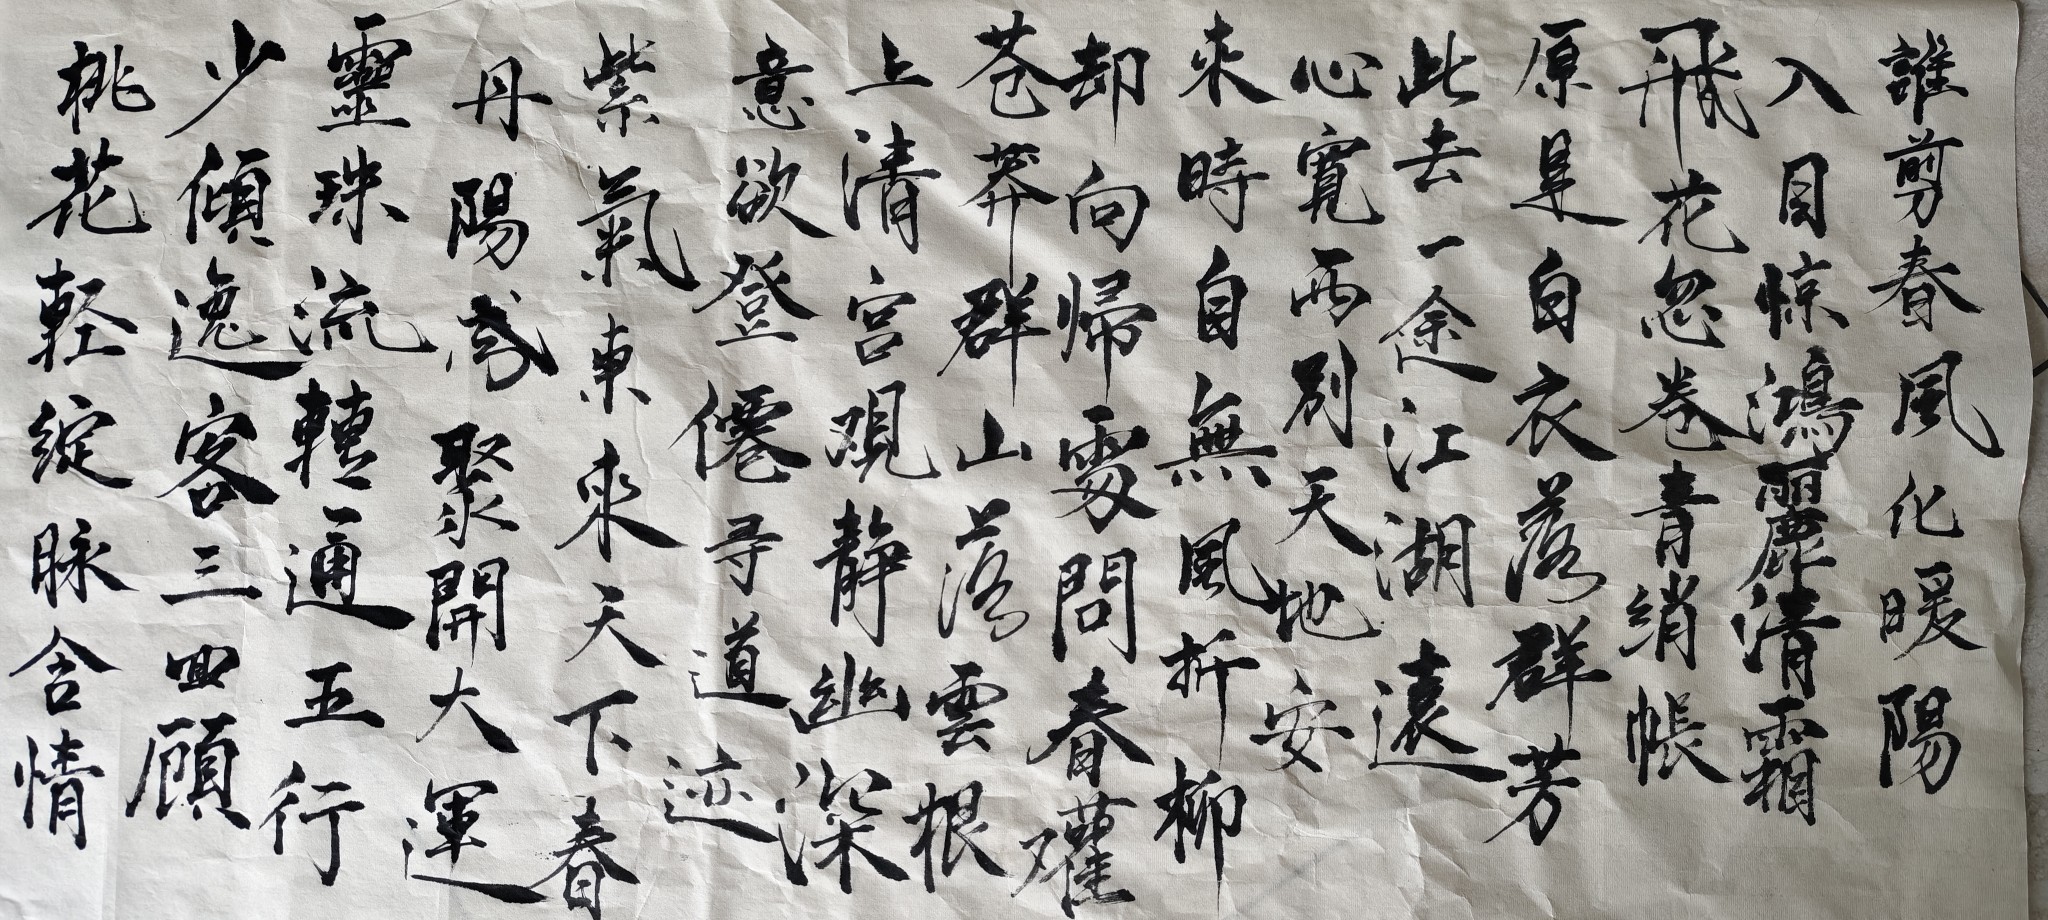 誰剪春風化暖陽
入目惊鴻麗清霜
飛花忽卷青绡帳
原是白衣落群芳
此去一途江湖遠
心寬两别天地安
来時自無風折柳
却向帰處問春
苍莽群山落雲根
上清宫观静幽深
意欲登僊寻道迹
紫氣東來天下春
丹陽聚開大運
靈珠流轉通五行
少傾逸客三四顾
桃花軽綻脉含情